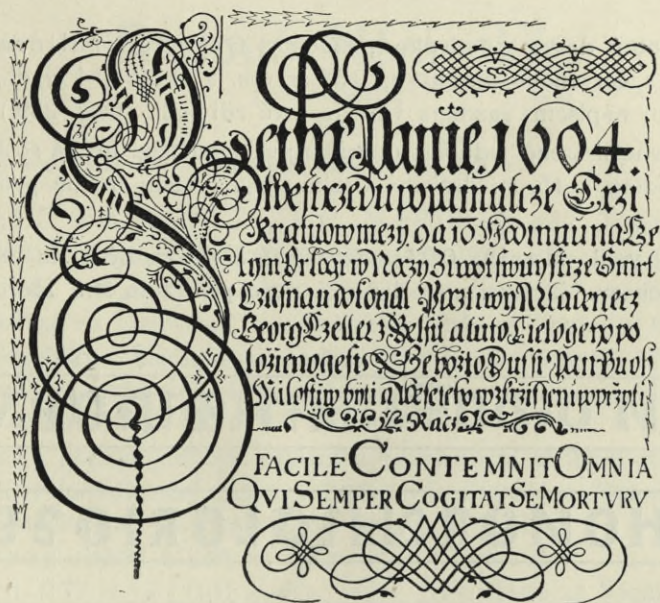 Letha Panie 1604.
We strzedu po pamatcze Trzi
Kraluow mezy 9 a 10 Hodinau na Cze
lym Orlogi w Noczy Ziwot swuy skrze Smrt
Czasnau dokonal Pocztiwy Mladenecz
Georg Czeller z Belsu a tuto Tielo geho po
lozieno gest Geho zto Dussi Pan Buoh
Milostiw byti a Wesele ho wzkrzisseni poprzyti
Racz
FACILE CONTEMNIT OMNIA
QVI SEMPER COGITAT SE MORTVRV